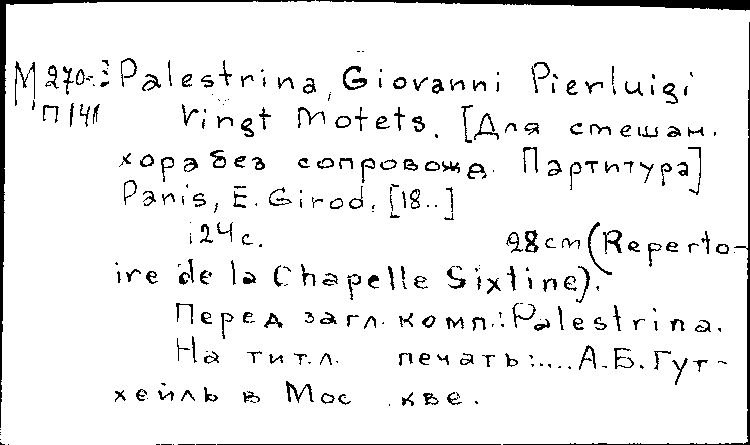 М 270-3 Palestrina, Giovanni Pierluigi
П 141 Vingt Motets. [Для смешан.
хора без сопровожд. Партитура]
Paris, E. Girod, [18..]
124 с. 28 cm (Reperto-
ire de la Chapelle Sixtine).
Перед загл. комп.: Palestrina.
На тит. л. печать: .... А.Б. Гут-
хейль в Мос кве.